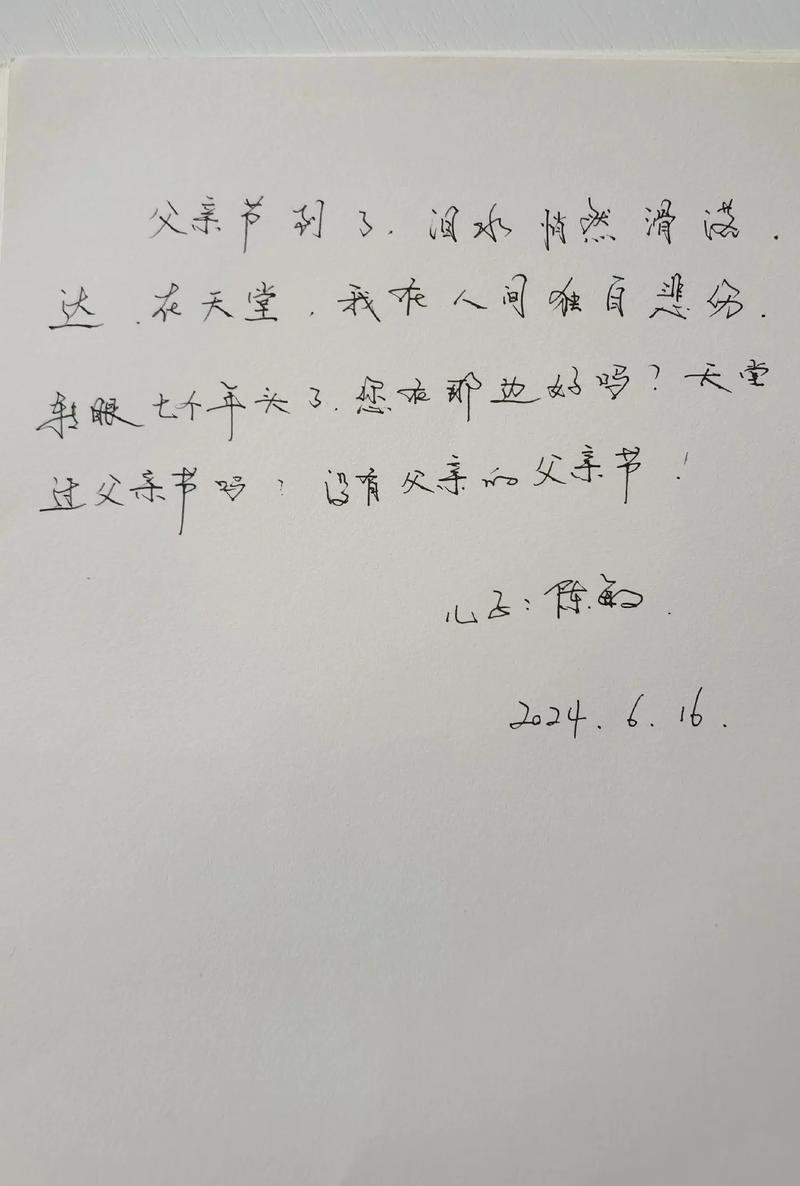 父亲节到了.泪水悄然滑落.
达.在天堂,我在人间独自悲伤.
转眼七个年头了.您在那边好吗?天堂
过父亲节吗?没有父亲的父亲节!
儿子:陈敏.
2024.6.16.